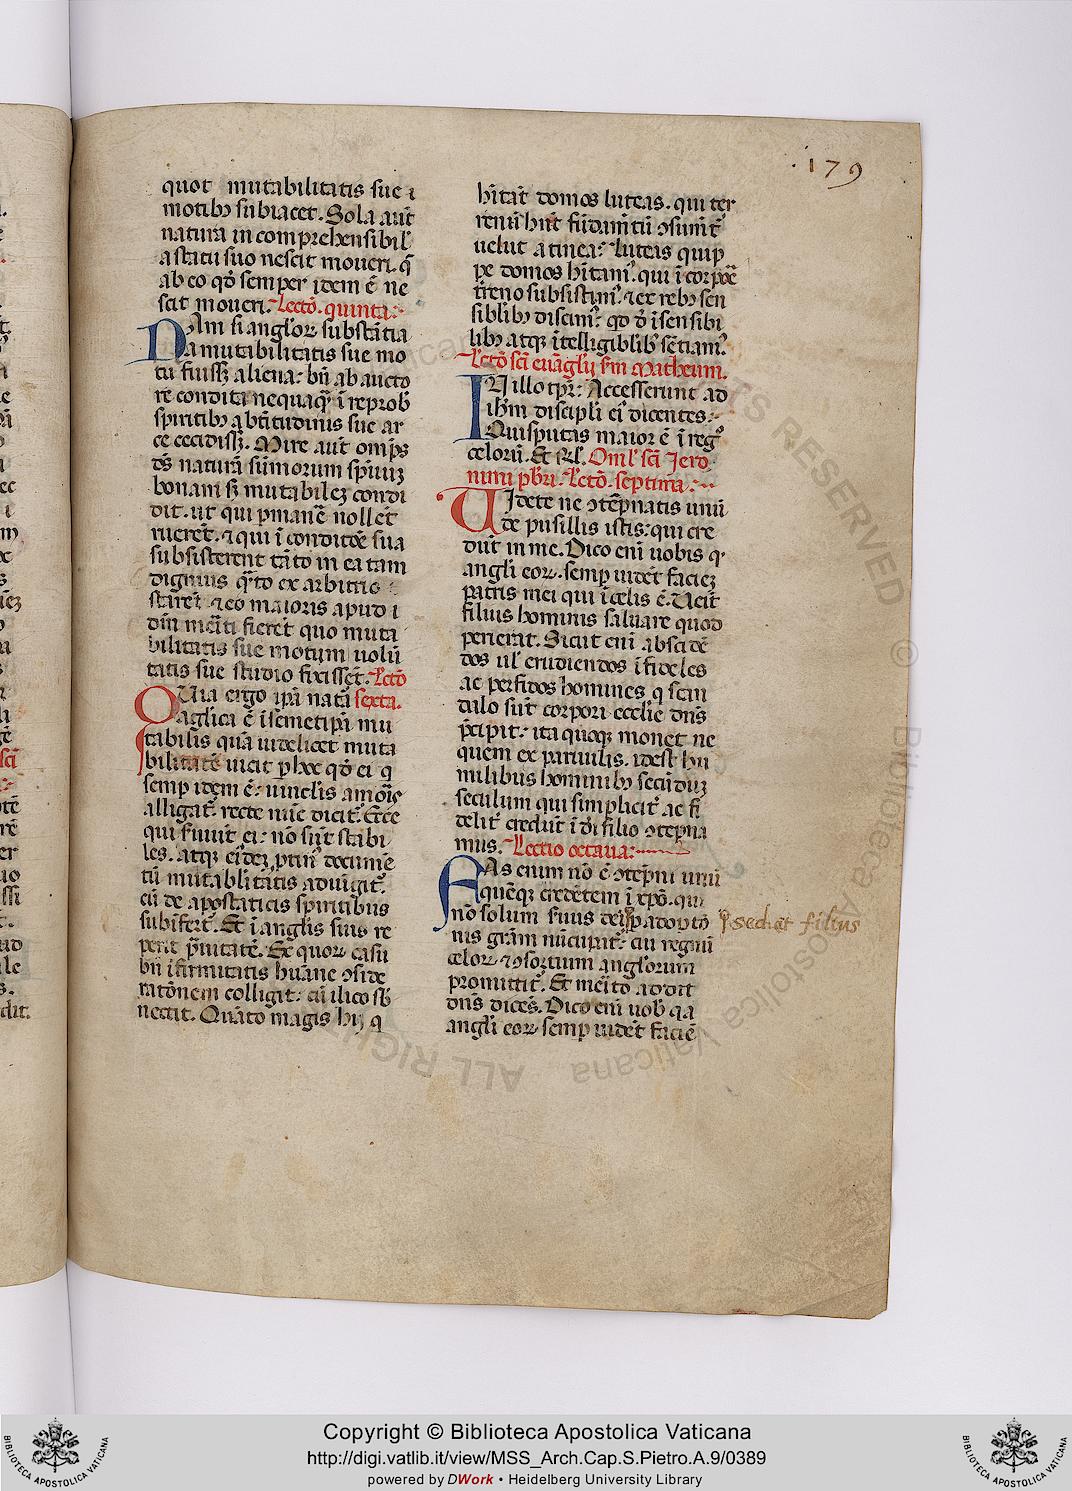 179
quot mutabilitatis sue i
motibꝰ subiacet. Sola aut̃
natura incomprehensibil'
a statu suo nescit moueri. q̃
ab eo qd̃ semper idem ẽ ne
scit moueri. Lectõ. quinta.
Nam si angl'oꝝ substãtia
a mutabilitatis sue mo
tu fuiss; aliena: bñ ab aucto
re condita nequaq̃ ĩ reprob'
spiritibꝰ a btĩtudinis sue ar
ce cecidiss;. Mire aut̃ omp̃s
ds̃ naturã sũmorum sp̃iuũ
bonam s; mutabilez condi
dit. ut qui pmanẽ nollet
rueret̃. ⁊ qui ĩ conditõe sua
subsisterent tãto in ea tam
dignius q̃to ex arbitrio
staret̃ ⁊ eo maioris apud i
dm̃ meĩti fieret̃ quo muta
bilitatis sue motum uolũ
tatis sue studio fixisset̃. Lectõ
Quia ergo ip̃a natã sexta.
agl'ica ẽ ĩ semetip̃a mu
tabilis quã uidelicet muta
bilitatẽ uicit p hoc qd̃ ei q
semp idem ẽ: uinclis amoris
alligat̃. recte nũc dicit̃. Ecce
qui fiuut̃ ei: nõ sũt stabi
les. atq; eidez ptinꝰ documẽ
tũ mutablitãtis adũigit̃.
cũ de apostaticis spiritibus
subĩfert̃. Et ĩ angl'is suis re
perit p̃uitatẽ. Ex quoꝝ casu
bñ ĩfirmitatis huãne ɔside
ratõnem colligit: cũ ilico sb̃
nectit. Quãto magis hij q
hĩtãt domos luteas. qui ter
renũ hñt fũdamẽtũ ɔsumẽt̃
uelut a tinea: luteas quip
pe domos hĩtamꝰ. qui ĩ corpõe
t̃reno subsistimꝰ. ⁊ ex rebꝰ sen
siblibꝰ discimꝰ: qd d̃ ĩsensibi
libꝰ atq; ĩtelligiblib' sẽtiamꝰ.
Lectõ sc̃i euãglij scm̃ Matheum.
In illo tpr̃: Accesserunt ad
ihm̃ discipli eiꝰ dicentes:
Quisputas maior ẽ ĩ regꝰ
celorũ. Et Rl'. Oml' sc̃i Jero
nimi pbr̃i. Lectõ. septima.
Uidete ne ɔtẽpnatis unũ
de pusillis istis: qui cre
dũt in me. Dico eni uobis q
angl'i eoꝝ. semp uidẽt faciez
patris mei qui ĩ celis ẽ. Ueit̃
filius hominis saluare quod
perierat. Sicut eni abscidẽ
dos ul' erudiendos ĩfideles
ac perfidos homines q scan
dalo sũt corpori ecclie dns̃
p̃cipit: ita quoq; monet ne
quem ex paruulis. idest hu
milibus hominibꝰ secũduz
seculum qui simplicit̃ ac fi
delit̃ credũt ĩ di filio ɔtẽpna
mus. Lectio octaua:
Fas enim nõ ẽ ɔtẽpni unũ
quẽq; credẽtem ĩ xp̃o. qui
nõ solum suus dei ꝑ adoptõ
nis grãm nũcupat̃: cui regnũ
celoꝝ ⁊ ɔsortium angl'orum
promittit̃. Et meĩto addit
dns̃ dicẽs. Dico eni uob' qa
angl'i eoꝝ semp uidẽt faciẽ
sed et filius
ALL RIGHTS RESERVED
© Biblioteca Apostolica Vaticana
Copyright © Biblioteca Apostolica Vaticana
http://digi.vatlib.it/view/MSS_Arch.Cap.S.Pietro.A.9/0389
powered by DWork • Heidelberg University Library
BIBLIOTECA APOSTOLICA VATICANA
BIBLIOTECA APOSTOLICA VATICANA